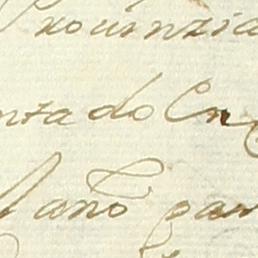 Prouinzia
ntado En
año par